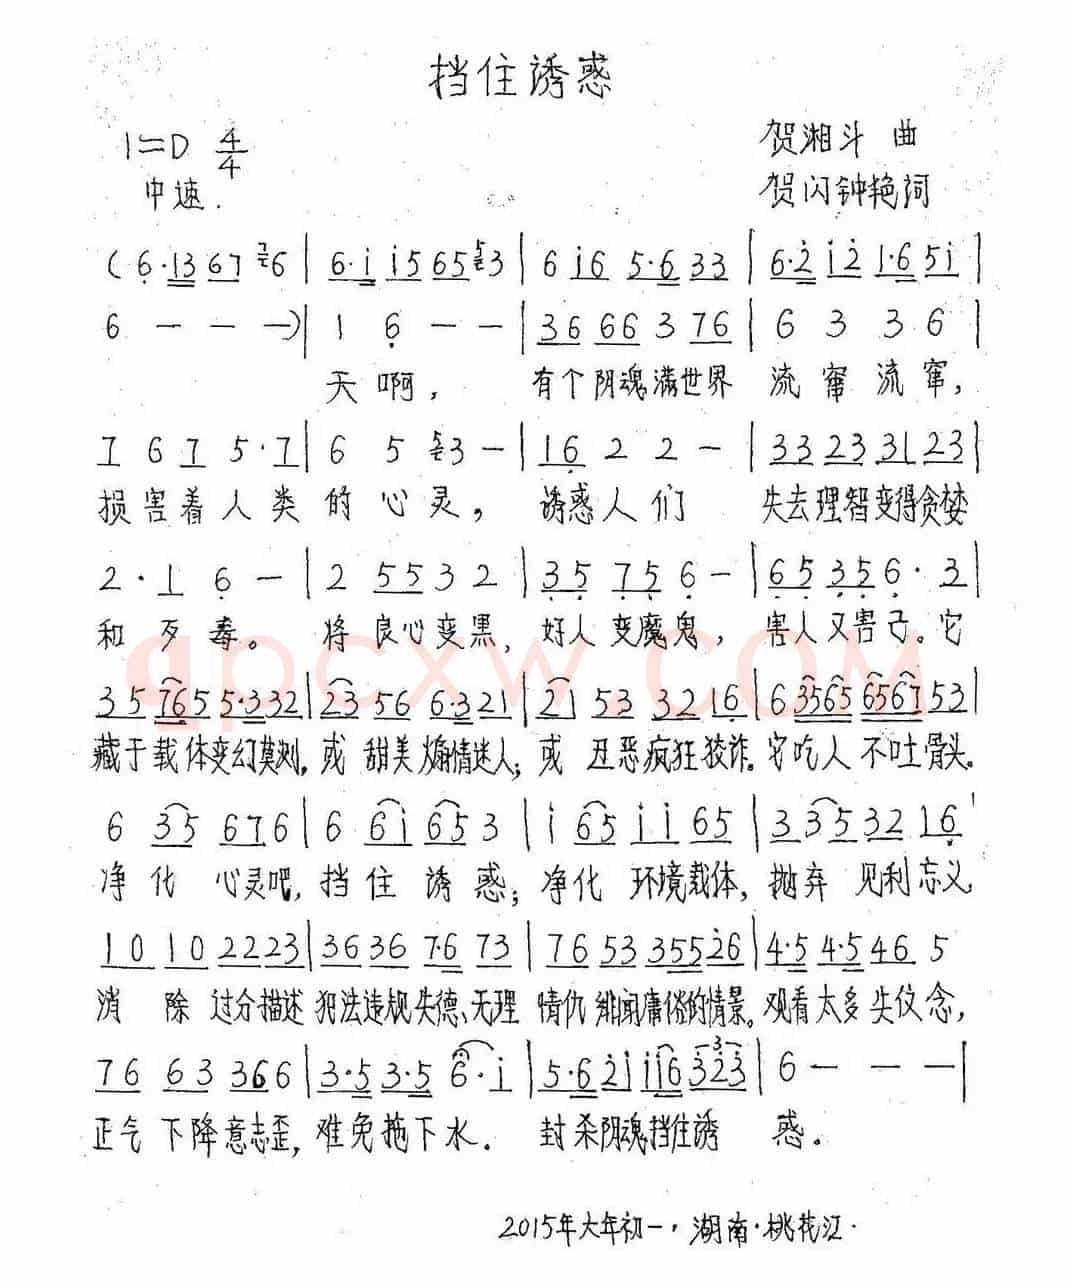 挡住诱惑
1=D 4/4
贺湘斗 曲
中速.
贺闪钟艳词
(6·13 67 76 | 6·i i5 65 53 | 6 i6 5·6 33 | 6·2 i2 1·6 5i |
6 — — —)| 1 6 — — | 36 66 3 76 | 6 3 3 6 |
天 啊, 有个阴魂满世界 流 窜 流 窜,
7 6 7 5·7 | 6 5 53 — | 16 2 2 — | 33 23 31 23 |
损害着人类 的 心 灵, 诱惑人们 失去理智变得贪婪
2·1 6 — | 2 55 3 2 | 35 75 6 — | 65 35 6·3 |
和 歹 毒。 将 良心变黑, 好人变魔鬼, 害人又害己。它
35 7655·332 | 23 56 6·321 | 21 53 32 16 | 6 3565 6567 53 |
藏于载体变幻莫测, 或 甜美煽情迷人; 或 丑恶疯狂狡诈。它吃人不吐骨头。
6 35 676 | 6 6i 65 3 | i 65 ii 65 | 3 35 32 16 |
净化 心灵吧, 挡住诱惑; 净化 环境载体, 抛弃 见利忘义
10 10 2223 | 3636 7·6 73 | 76 53 355 26 | 4·5 4·5 46 5
消 除 过分描述 犯法违规失德、无理 情仇 绯闻庸俗的情景。观看太多失仪念,
76 63 366 | 3·5 3·5 6·i | 5·6 2i ii6 323 | 6 — — — |
正气 下降意志歪, 难免拖下水. 封杀阴魂挡住诱 惑。
2015年大年初一,湖南·桃花江.
qpcxw.com